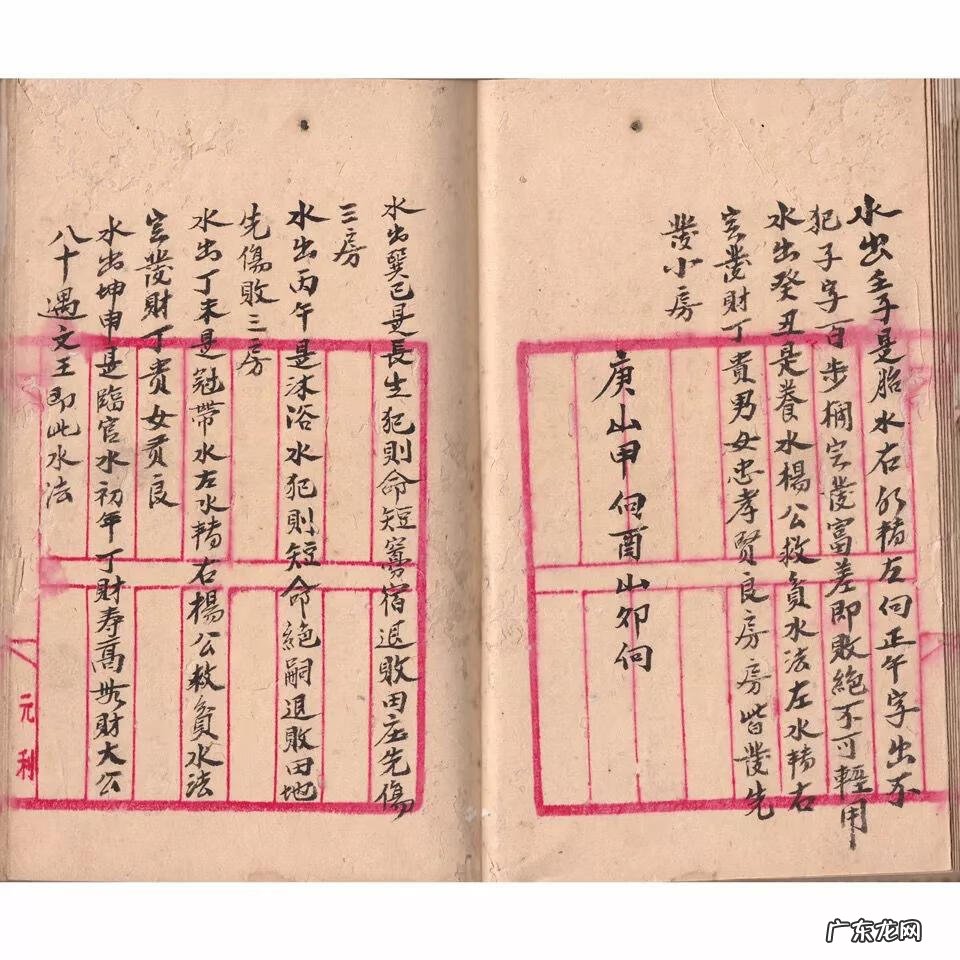 水出壬子是胎水右水轉左向正午字出不
犯子字百步欄定發富差即敗絕不可輕用
水出癸丑是養水楊公救貧水法左水轉右
定發財丁貴男女忠孝賢良房房皆發先
發小房
庚山甲向酉山卯向
水出巽巳是長生犯則命短窮宿退敗田庄先傷
三房
水出丙午是沐浴水犯則短命絕嗣退敗田地
先傷敗三房
水出丁未是冠帶水左水轉右楊公救貧水法
定發財丁貴女貢良
水出坤申是臨官水初年丁財寿高無財太公
八十遇文王即此水法
元利
广东龙网